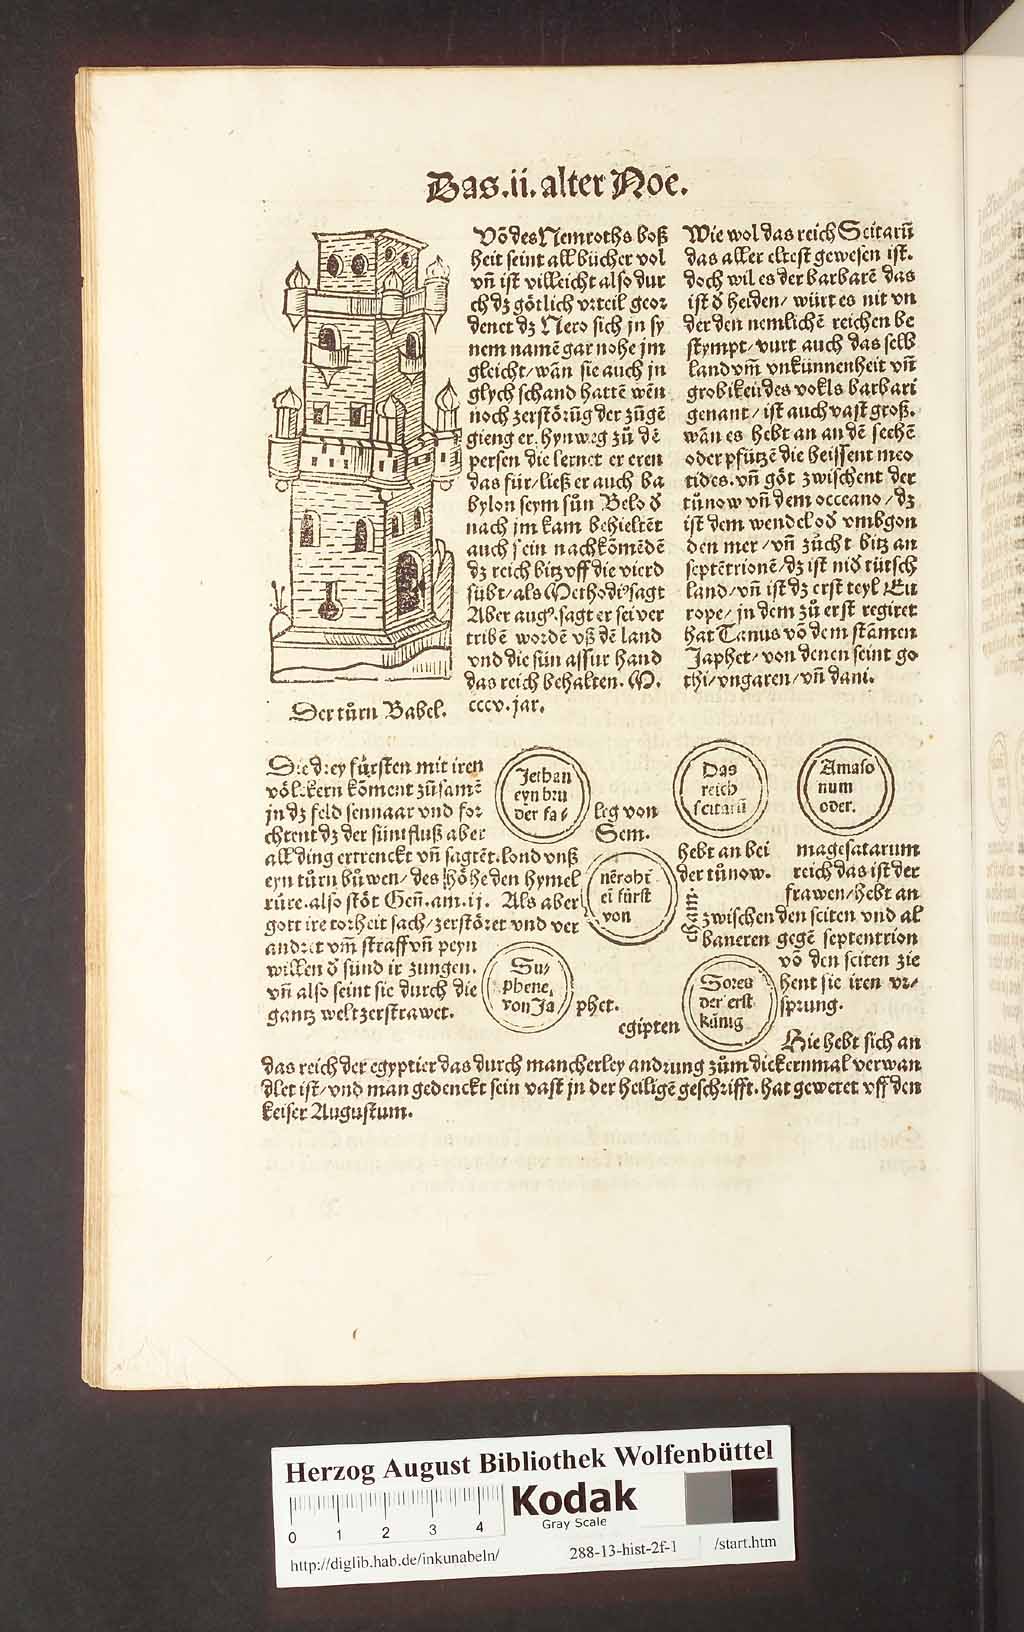 Das.ii.alter Noe.
Võ des Nemroths boß
heit seint all bücher vol
vñ ist villeicht also dur
ch dz götlich vrteil geor
denet dz Nero sich jn sy
nem namẽ gar nohe jm
gleicht/wañ sie auch jn
glych schand hattẽ wẽn
noch zerstörũg der zũgẽ
gieng er. hynweg zů dẽ
persen die lernet er eren
das für/ließ er auch ba
bylon seym sůn Belo ð
nach jm kam behieltẽt
auch sein nachkõmẽdẽ
dz reich bitz vff die vierd
sübt/als Methodi⁹ sagt
Aber aug⁹.sagt er sei ver
tribẽ wordẽ vß dẽ land
vnd die sün assur hand
das reich behalten. M.
cccv.jar.
Der tůrn Babel.
Wie wol das reich Scitarũ
das aller eltest gewesen ist.
doch wil es der barbarẽ das
ist ð heiden/ würt es nit vn
der den nemlichẽ reichen be
stympt/vurt auch das selb
land vm̃ vnkünnenheit vñ
grobikeit des volks barbari
genant/ ist auch vast groß.
wãn es hebt an an dẽ seehẽ
oder pfützẽ die heissent meo
tides.vñ göt zwischent der
tůnow vñ dem occeano/dz
ist dem wendel oð vmbgon
den mer/vñ zůcht bitz an
septẽtrionẽ/dz ist nið tütsch
land/vñ ist dz erst teyl Eu
rope/jn dem zů erst regiret
hat Tanus võ dem stãmen
Japhet/von denen seint go
thi/vngaren/vñ dani.
Die drey fürsten mit iren
völckern kõment zůsamẽ
jn dz feld sennaar vnd for
chtent dz der sintfluß aber
all ding ertrenckt vñ sagtẽt.lond vnß
eyn tůrn bůwen/ des höhe den hymel
růre.also stöt Geñ.am.ij. Als aber
gott ire torheit sach/zerstöret vnd ver
andret vm̃ straff vñ peyn
willen ð sünd ir zungen.
vñ also seint sie durch die
gantz welt zerstrawet.
Jethan
eyn bru
der fa/
leg von
Sem.
nẽroht
ei fürst
von
cham.
Su/
phene,
von Ja
phet.
Das
reich
scitarũ
hebt an bei
der tůnow.
Amaso
num
oder.
magesatarum
reich das ist der
frawen/hebt an
zwischen den sciten vnd al
baneren gegẽ septentrion
võ den sciten zie
hent sie iren vr/
sprung.
Sores
der erst
künig
egipten
Hie hebt sich an
das reich der egyptier das durch mancherley andrung zům dickernmal verwan
dlet ist/vnd man gedenckt sein vast jn der heiligẽ geschrifft.hat geweret vff den
keiser Augustum.
Herzog August Bibliothek Wolfenbüttel
0 1 2 3 4
Kodak
Gray Scale
http://diglib.hab.de/inkunabeln/
288-13-hist-2f-1
/start.htm